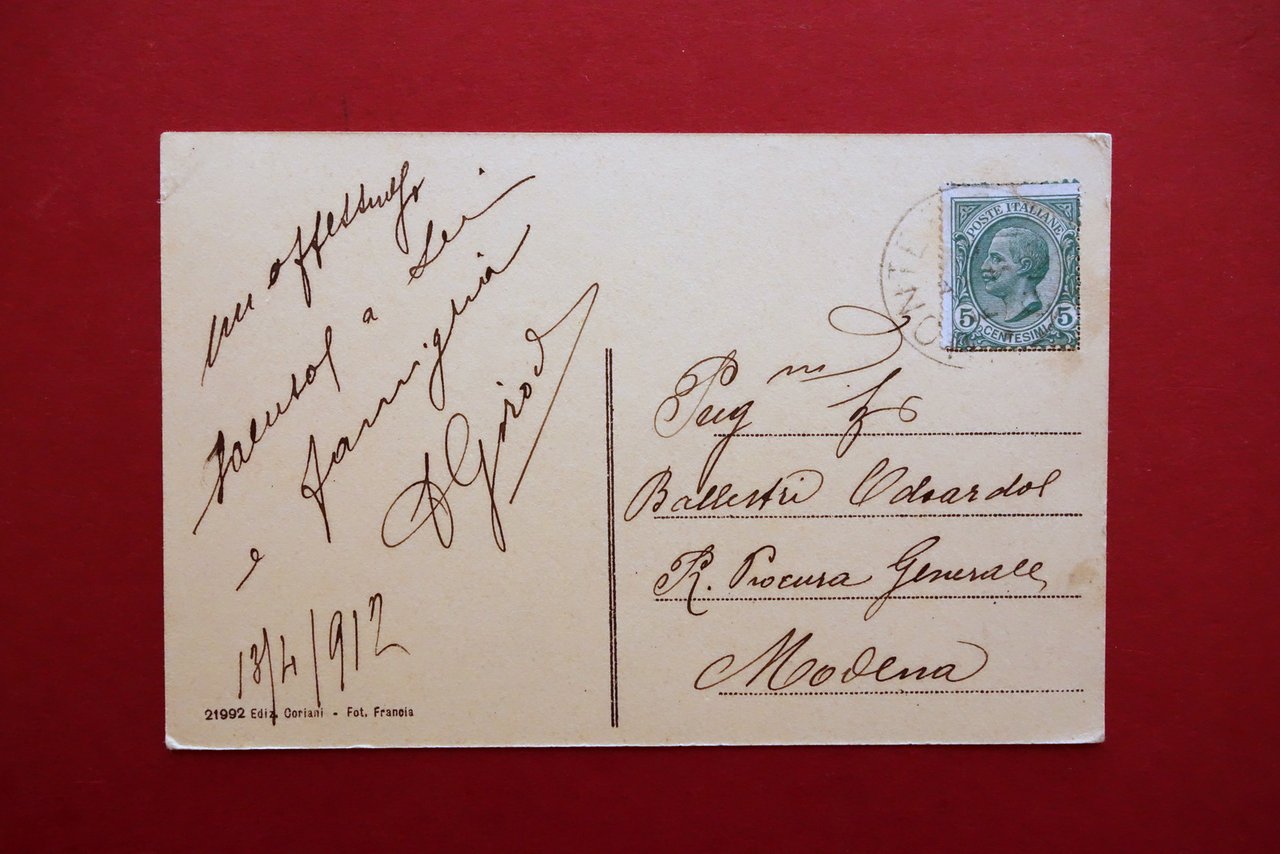 un affettuoso
saluto a Lei
e famiglia
13/4/912
21992 Ediz. Coriani - Fot. Francia
POSTE ITALIANE
5 CENTESIMI 5
Ballestri Odoardo
R. Procura Generale
Modena